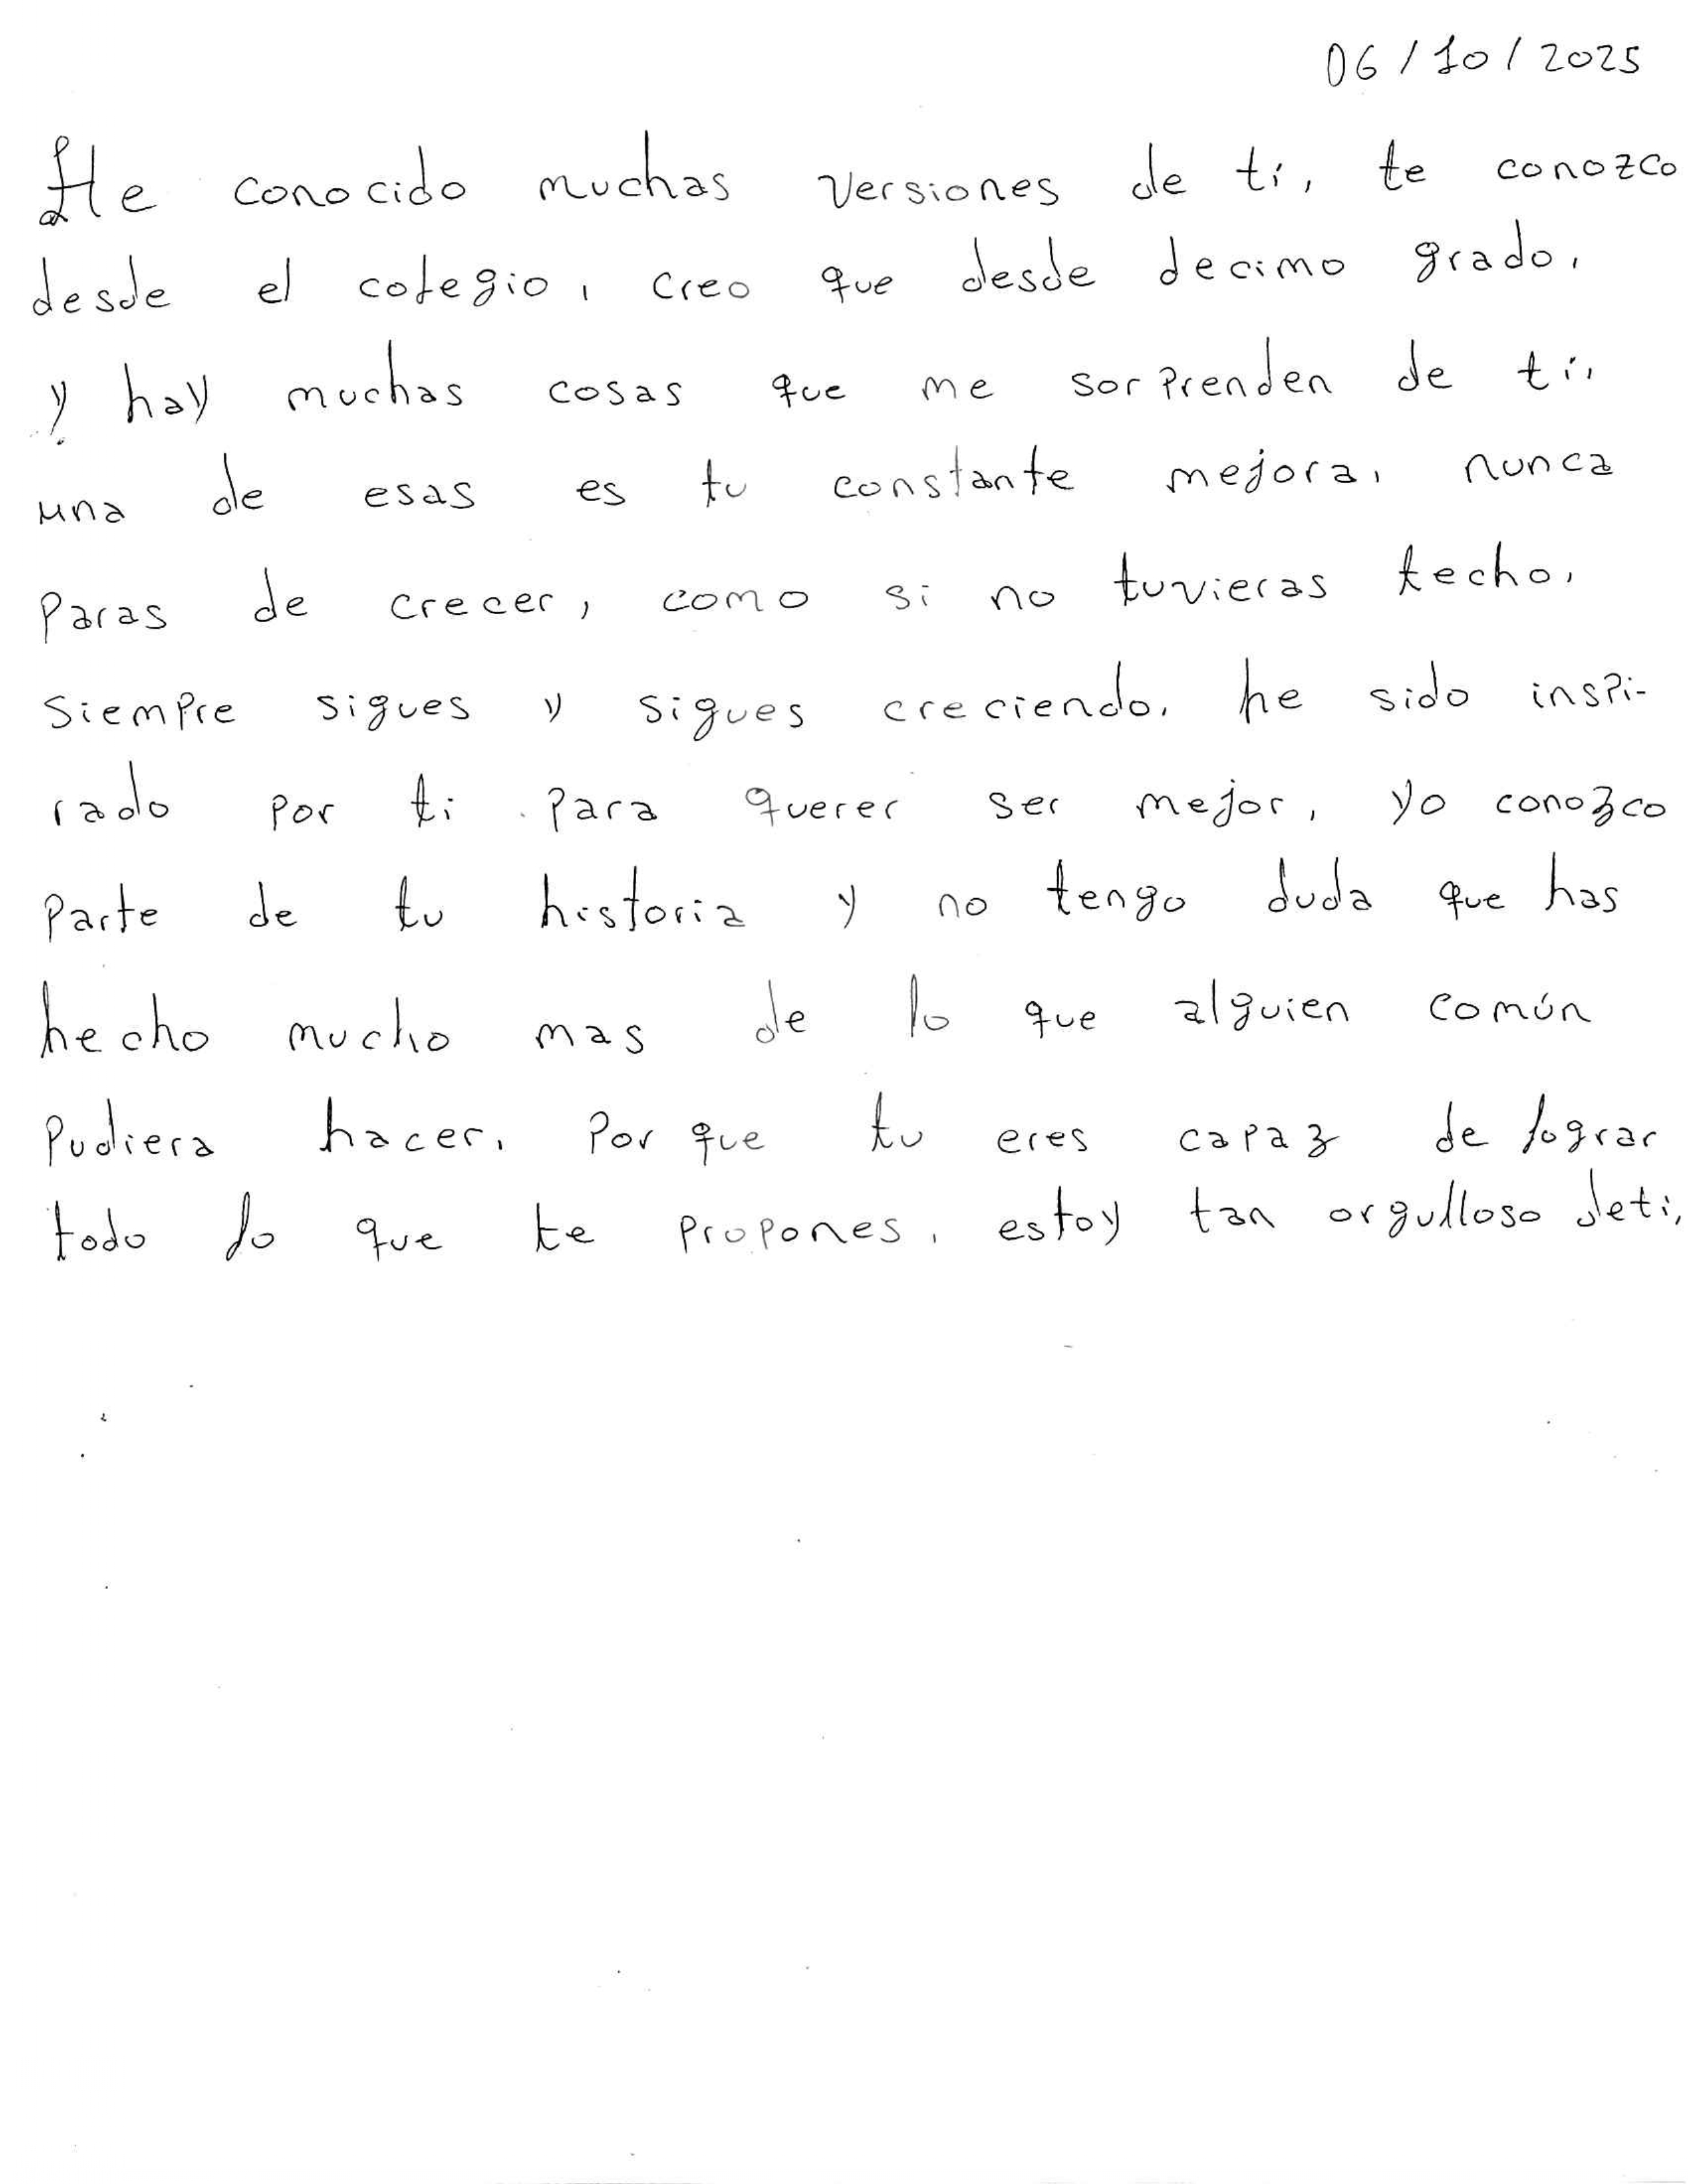 06/10/2025
He conocido muchas versiones de ti, te conozco
desde el colegio, creo que desde decimo grado,
y hay muchas cosas que me sorprenden de ti,
una de esas es tu constante mejora, nunca
paras de crecer, como si no tuvieras techo,
siempre sigues y sigues creciendo, he sido inspi-
rado por ti para querer ser mejor, yo conozco
parte de tu historia y no tengo duda que has
hecho mucho mas de lo que alguien común
pudiera hacer, por que tu eres capaz de lograr
todo lo que te propones, estoy tan orgulloso de ti,